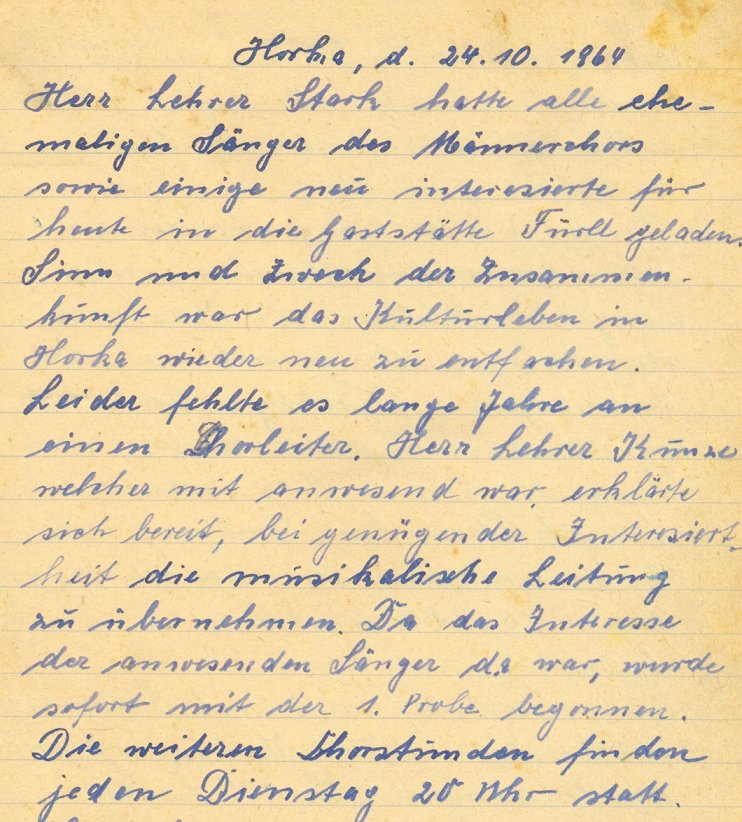 Horka, d. 24.10. 1964
Herr Lehrer Stark hatte alle ehe-
maligen Sänger des Männerchors
sowie einige neu interesierte für
heute in die Gaststätte Fürll geladen.
Sinn und Zweck der Zusammen-
kunft war das Kulturleben in
Horka wieder neu zu entfachen.
Leider fehlte es lange Jahre an
einen Chorleiter. Herr Lehrer Kunze
welcher mit anwesend war, erklärte
sich bereit, bei genügender Interesiert-
heit die musikalische Leitung
zu übernehmen. Da das Interesse
der anwesenden Sänger da war, wurde
sofort mit der 1. Probe begonnen.
Die weiteren Chorstunden finden
jeden Dienstag 20 Uhr statt.